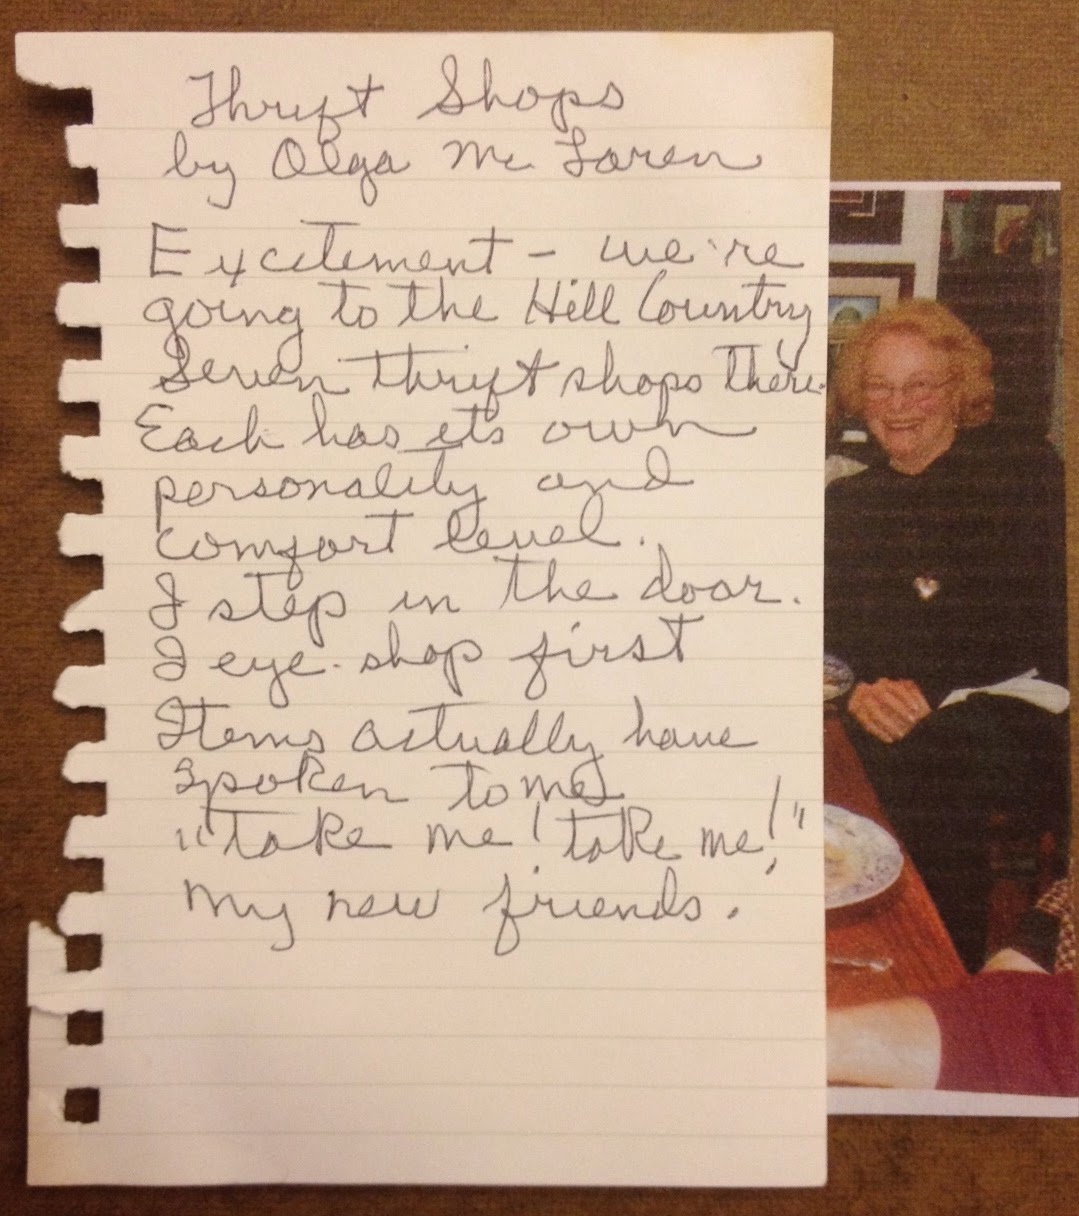 Thrift Shops
by Olga Mc Laren
Excitement - we're
going to the Hill Country
Seven thrift shops there.
Each has its own
personality and
comfort level.
I step in the door.
I eye-shop first
Items actually have
spoken to me
"take me! take me!"
My new friends.